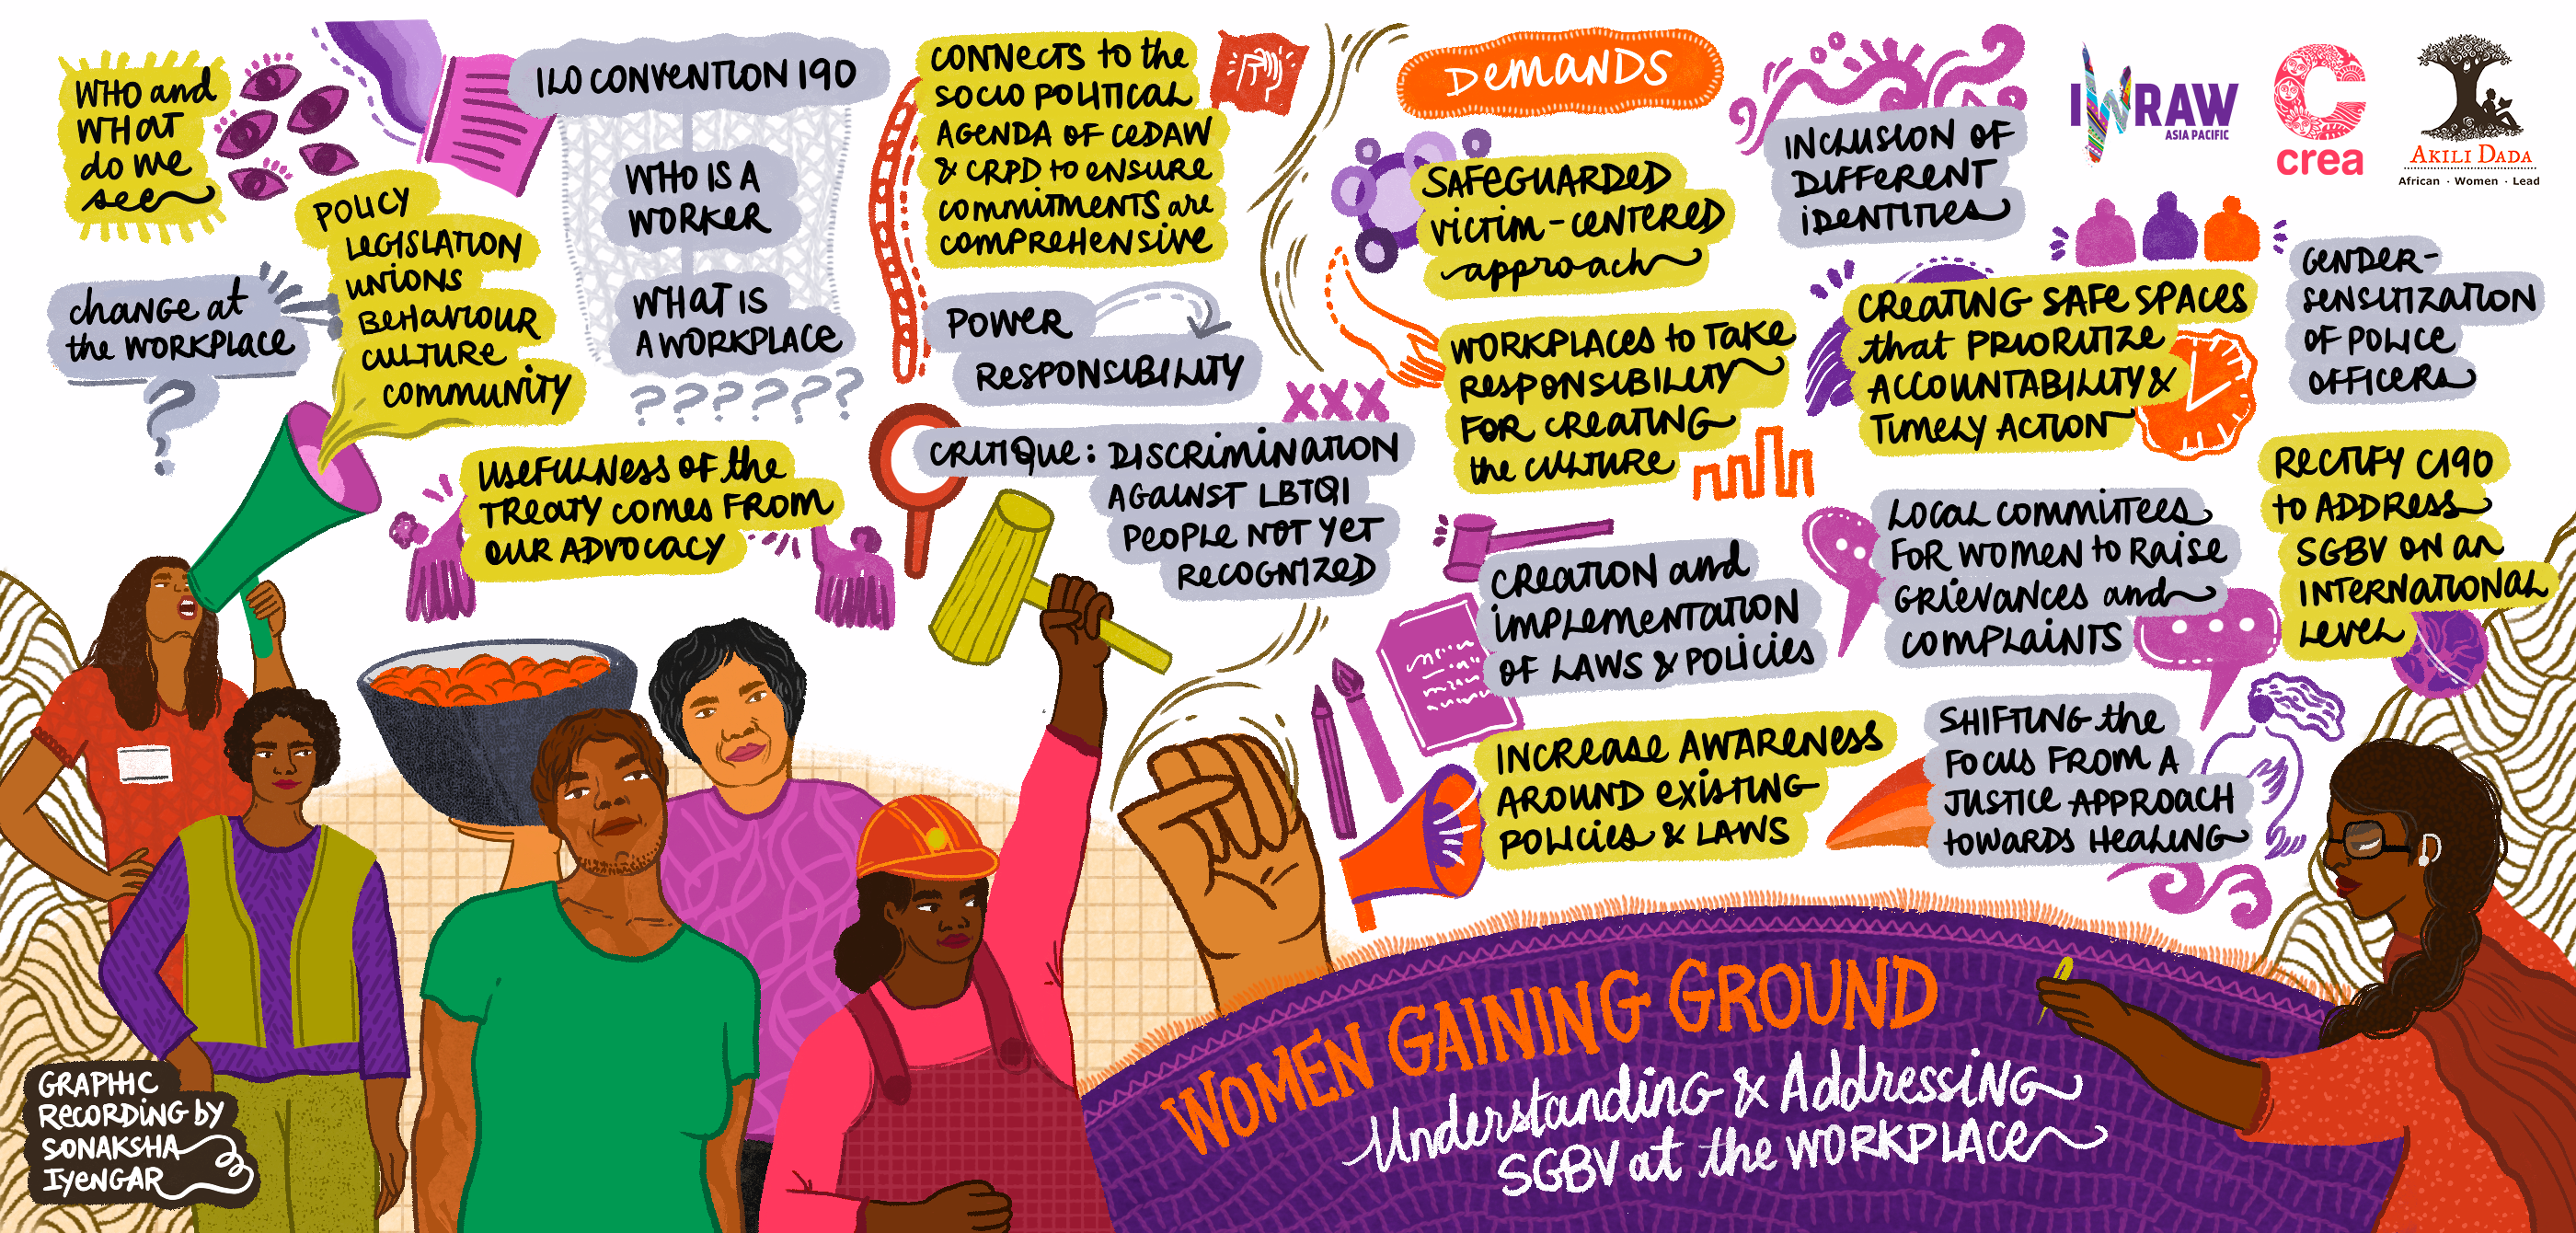 WHO and
WHAT
do we
see
POLICY
LEGISLATION
UNIONS
BEHAVIOUR
CULTURE
COMMUNITY
change at
the WORKPLACE
?
ILO CONVENTION 190
WHO IS A
WORKER
WHAT IS
A WORKPLACE
??????
USEFULNESS OF the
TREATY comes FROM
OUR ADVOCACY
CONNECTS to the
SOCIO POLITICAL
AGENDA OF CEDAW
& CRPD to ENSURE
COMMITMENTS are
COMPREHENSIVE
POWER
RESPONSIBILITY
XXX
CRITIQUE: DISCRIMINATION
AGAINST LBTQI
PEOPLE NOT YET
RECOGNIZED
DEMANDS
SAFEGUARDED
VICTIM-CENTERED
approach
WORKPLACES to TAKE
RESPONSIBILITY
FOR CREATING
the CULTURE
CREATION and
IMPLEMENTATION
OF LAWS & POLICIES
INCREASE AWARENESS
AROUND EXISTING
POLICIES & LAWS
INCLUSION OF
DIFFERENT
IDENTITIES
CREATING SAFE SPACES
that PRIORITIZE
ACCOUNTABILITY &
TIMELY ACTION
LOCAL COMMITTEES
FOR WOMEN to RAISE
GRIEVANCES and
COMPLAINTS
SHIFTING the
FOCUS FROM A
JUSTICE APPROACH
towards HEALING
GENDER-
SENSITIZATION
OF POLICE
OFFICERS
RECTIFY C190
to ADDRESS
SGBV ON AN
INTERNATIONAL
LEVEL
IWRAW
ASIA PACIFIC
crea
AKILI DADA
African · Women · Lead
WOMEN GAINING GROUND
Understanding & Addressing
SGBV at the WORKPLACE
GRAPHIC
RECORDING by
SONAKSHA
IYENGAR